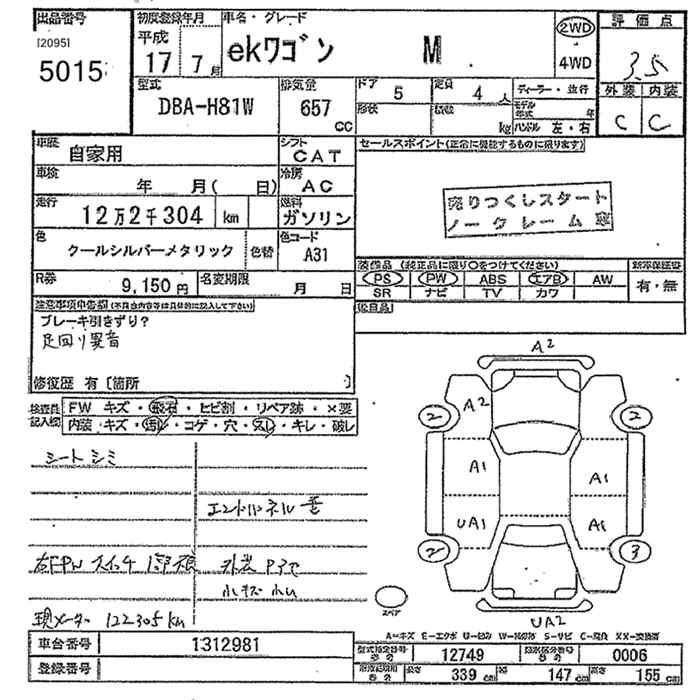 出品番号
[20951
5015
初度登録年月
平成
17 7月
車名・グレード
ekワゴン M
2WD
4WD
評価点
3.5
外装 内装
C C
型式
DBA-H81W
排気量
657
CC
ドア
5
形状
定員
4人
積数
kg
ディーラー・並行
モデル
年式 年
ハンドル 左・右
車歴
自家用
シフト
CAT
車検
年 月( 日)
冷房
AC
走行
12万2千304 km
燃料
ガソリン
色
クールシルバーメタリック
色替
色コード
A31
R券
9,150円
名変期限
月 日
セールスポイント(正常に機能するものに限ります)
売りつくしスタート
ノークレーム
装備品 (純正品に限り○をつけてください)
PS PW ABS エアB AW
SR ナビ TV カワ
新車保証書
有・無
注意事項申告欄(不具合内容等は具体的に記入して下さい)
ブレーキ引きずり?
足回り異音
修復歴 有〔箇所 〕
検査員
記入欄
FW キズ・飛石・ヒビ割・リペア跡・×要
内装・キズ・汚レ・コゲ・穴・スレ・キレ・破レ
シートシミ
右FPWスイッチ
外装
小キズ小凹
現メーター 122305km
車台番号
1312981
登録番号
A2
A2
2
2
A1
A1
UA1
A1
2
3
UA2
スペア
A-キズ E-エクボ U-凹み W-補修跡 S-サビ C-腐食 XX-交換済
型式指定番号
12749
類別区分番号
0006
長さ
339 cm
幅
147 cm
高さ
155 cm